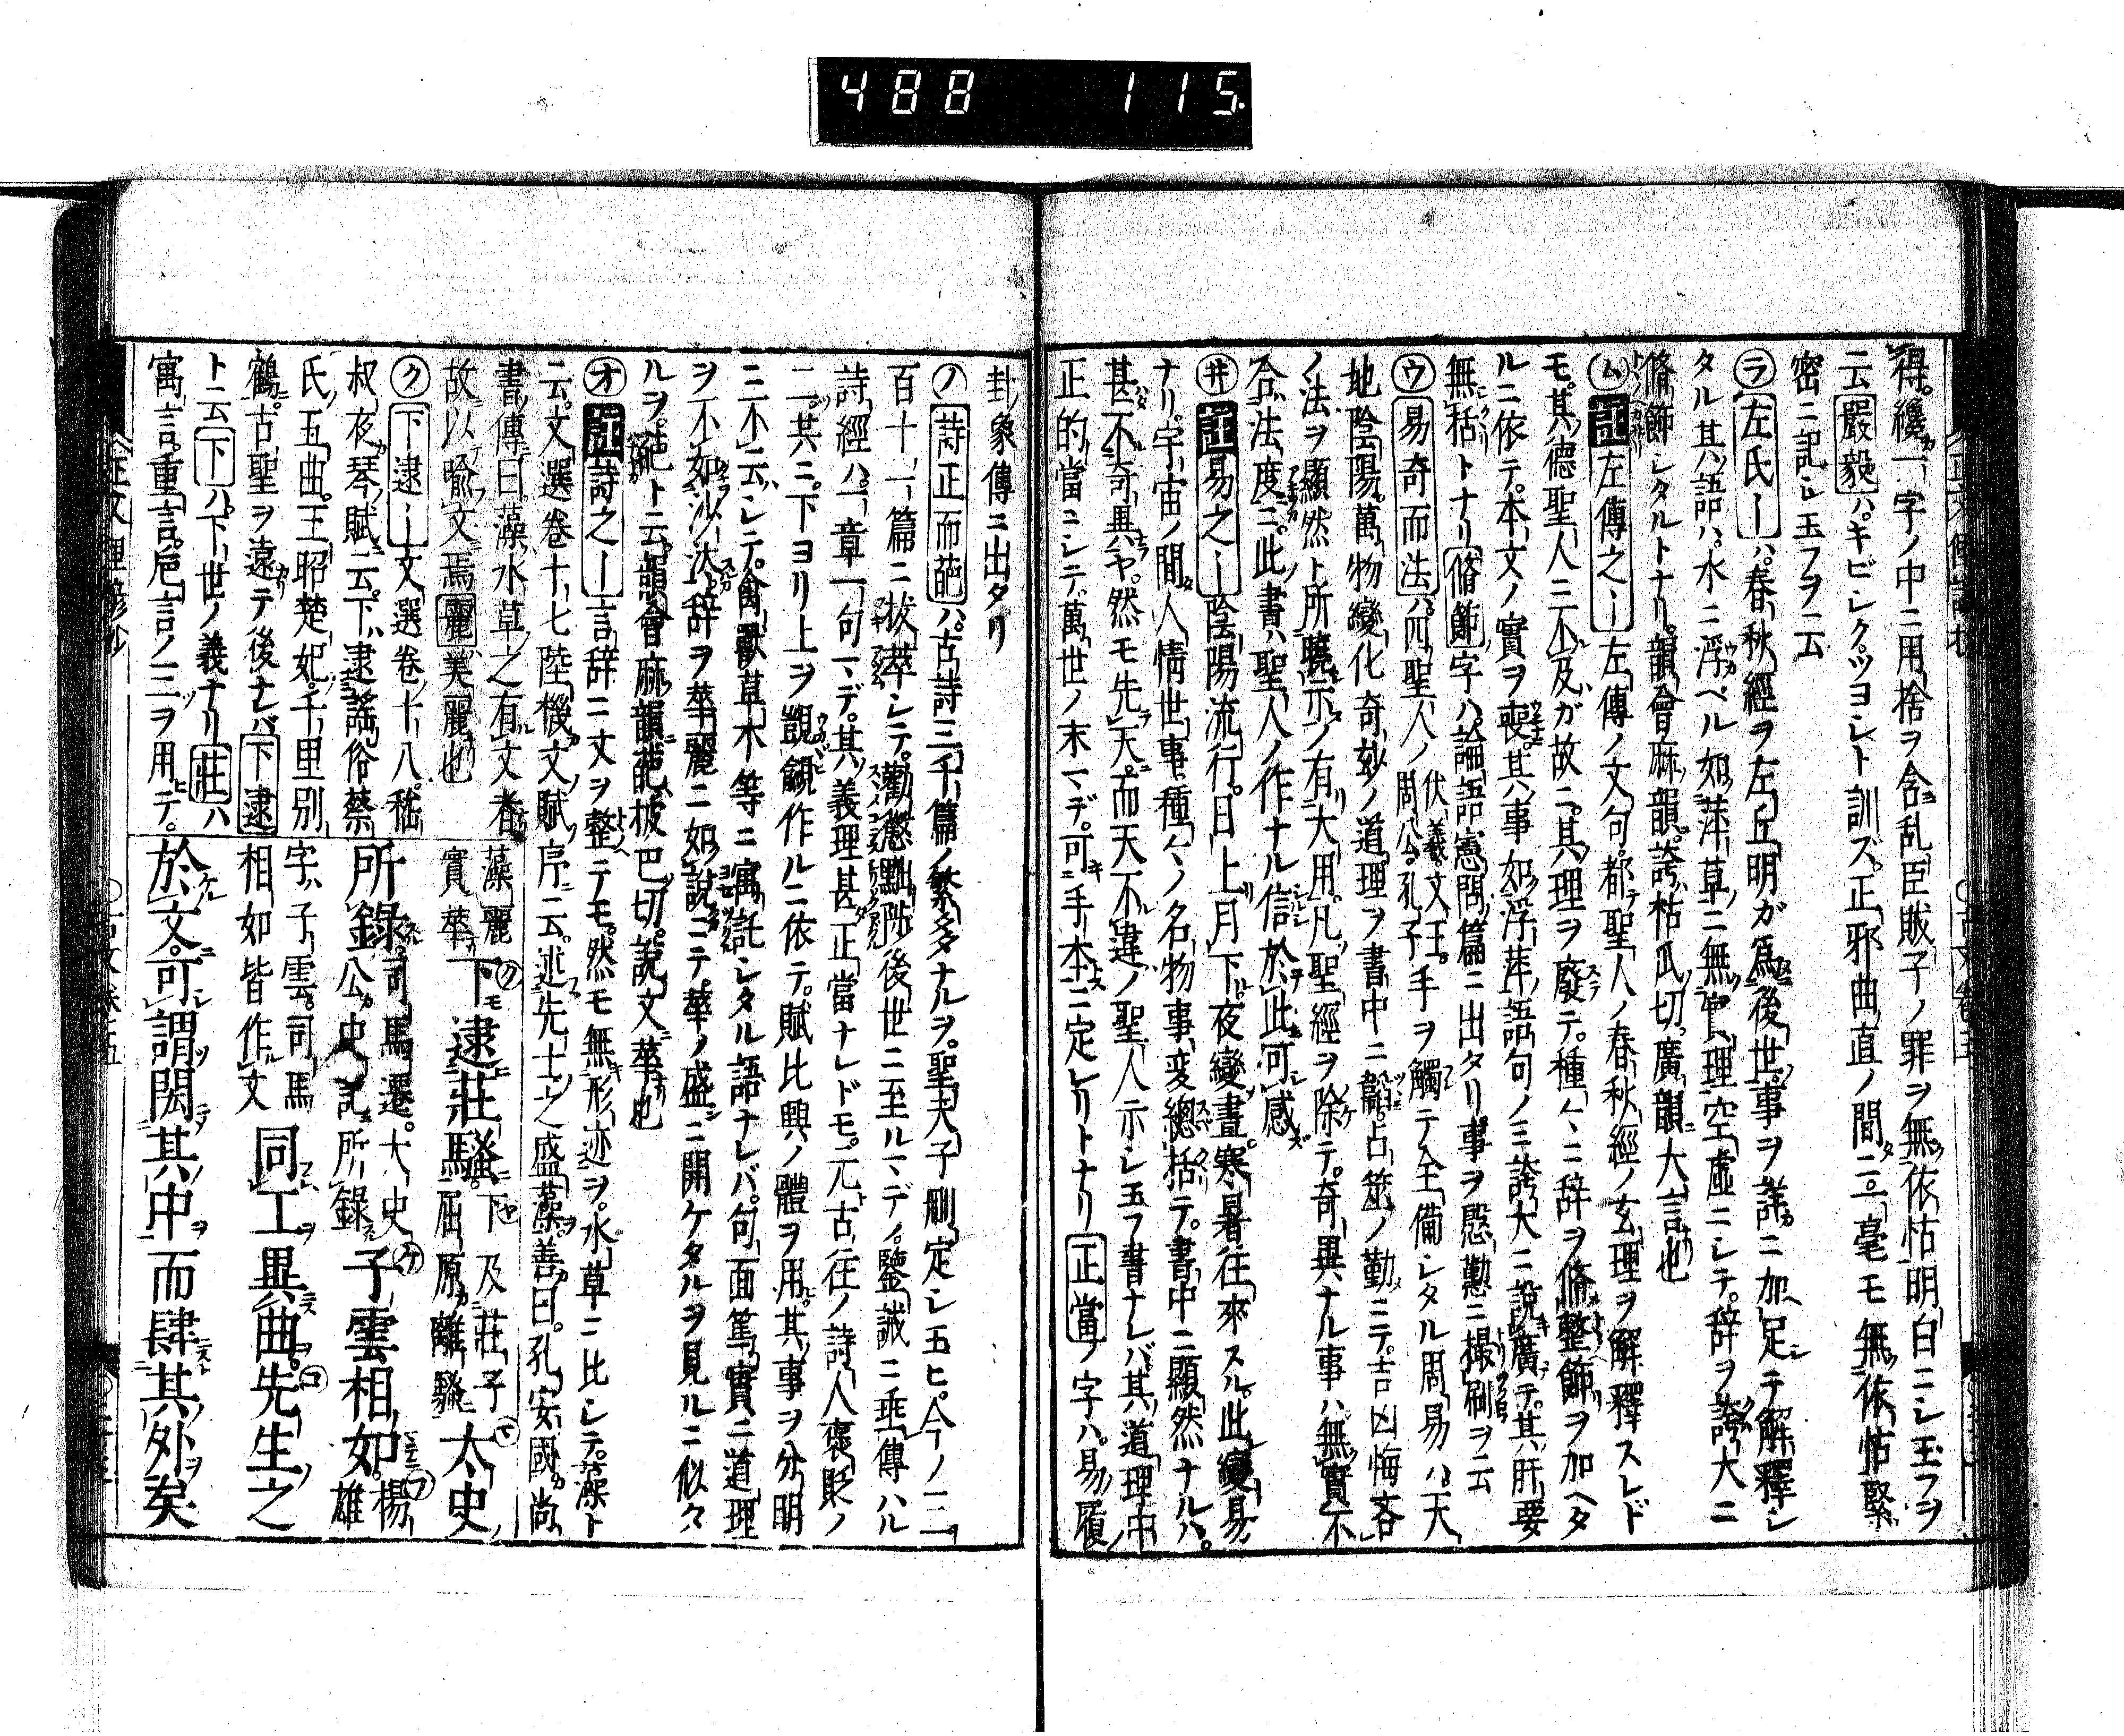 488 115
得纔一字ノ中ニ用捨ヲ含乱臣賊子ノ罪ヲ無依怙明白ニシ玉フヲ
云嚴毅ハキビシクツヨシト訓ズ正邪曲直ノ間ニ一毫モ無依怙緊
密ニ記シ玉フヲ云
ラ左氏ーハ春秋經ヲ左丘明ガ爲後世事ヲ詳ニ加足テ解釋シ
タル其語ハ水ニ浮ベル如萍草ニ無實理空虚ニシテ辞ヲ誇大ニ
脩飾シタルトナリ韻會麻韻誇枯瓜切廣韻大言也
ム註左傳之ー左傳ノ文句都聖人ノ春秋經ノ玄理ヲ解釋スレド
モ其德聖人ニ不及ガ故ニ其理ヲ廢テ種々ニ辞ヲ脩整飾ヲ加ヘタ
ルニ依テ本文ノ實ヲ喪其事如浮萍語句ノミ誇大ニ說廣テ其肝要
無括トナリ脩飾字ハ論語憲問篇ニ出タリ事ヲ慇懃ニ撮刷ヲ云
ウ易奇而法ハ四聖人ノ伏羲文王周公孔子手ヲ觸テ全備シタル周易ハ天
地陰陽萬物變化奇妙ノ道理ヲ書中ニ韞占筮ノ勤ニテ吉凶悔吝
ノ法ヲ顯然ト所曉示ノ有大用凡聖經ヲ除テ奇異ナル事ハ無實不
合法度ニ此書ハ聖人ノ作ナル信於此可感
井註易之ー陰陽流行日上月下夜變晝寒暑往來スル此變易
ナリ宇宙ノ間人情世事種々ノ名物事変總括テ書中ニ顯然ナルハ
甚不奇異ヤ然モ先天而天不違ノ聖人示シ玉フ書ナレバ其道理中
正的當ニシテ萬世ノ末マデ可手本ニ定レリトナリ正當ノ字ハ易履
卦象傳ニ出タリ
ノ詩正而葩ハ古詩三千篇ノ繁多ナルヲ聖夫子刪定シ玉ヒ今ノ三
百十一篇ニ拔萃シテ勸懲黜陟後世ニ至ルマデノ鑒誡ニ垂傳ハル
詩經ハ一章一句マデ其義理甚正當ナレドモ元古往ノ詩人褒貶ノ
二其ニ下ヨリ上ヲ覬覦作ルニ依テ賦比興ノ體ヲ用其事ヲ分明
ニ不云シテ禽獸草木等ニ寓託シタル語ナレバ句面篤實ニ道理
ヲ不如沙汰辞ヲ華麗ニ如說ニテ華ノ盛ニ開ケタルヲ見ルニ似タ
ルヲ葩ト云韻會麻韻葩披巴切說文華也
オ註詩之ー言辞ニ文ヲ整テモ然モ無形迹ヲ水草ニ比シテ藻ト
云文選卷十七陸機文賦序ニ云述先士之盛藻善曰孔安國尚
書傳曰藻水草之有文者
故以喩文焉麗美麗也
ク下逮ー文選卷十八嵇
叔夜琴賦ニ云下逮謠俗蔡
氏五曲王昭楚妃千里別
鶴古聖ヲ遠テ後ナレバ下逮
ト云下ハ下世ノ義ナリ莊ハ
寓言重言巵言ノ三ヲ用テ
藻麗實華下逮莊騷下及莊子屈原離騷太史
所錄司馬遷大史公史記所錄子雲相如楊雄
字子雲司馬相如皆作文同工異曲先生之
於文可謂閎其中而肆其外矣